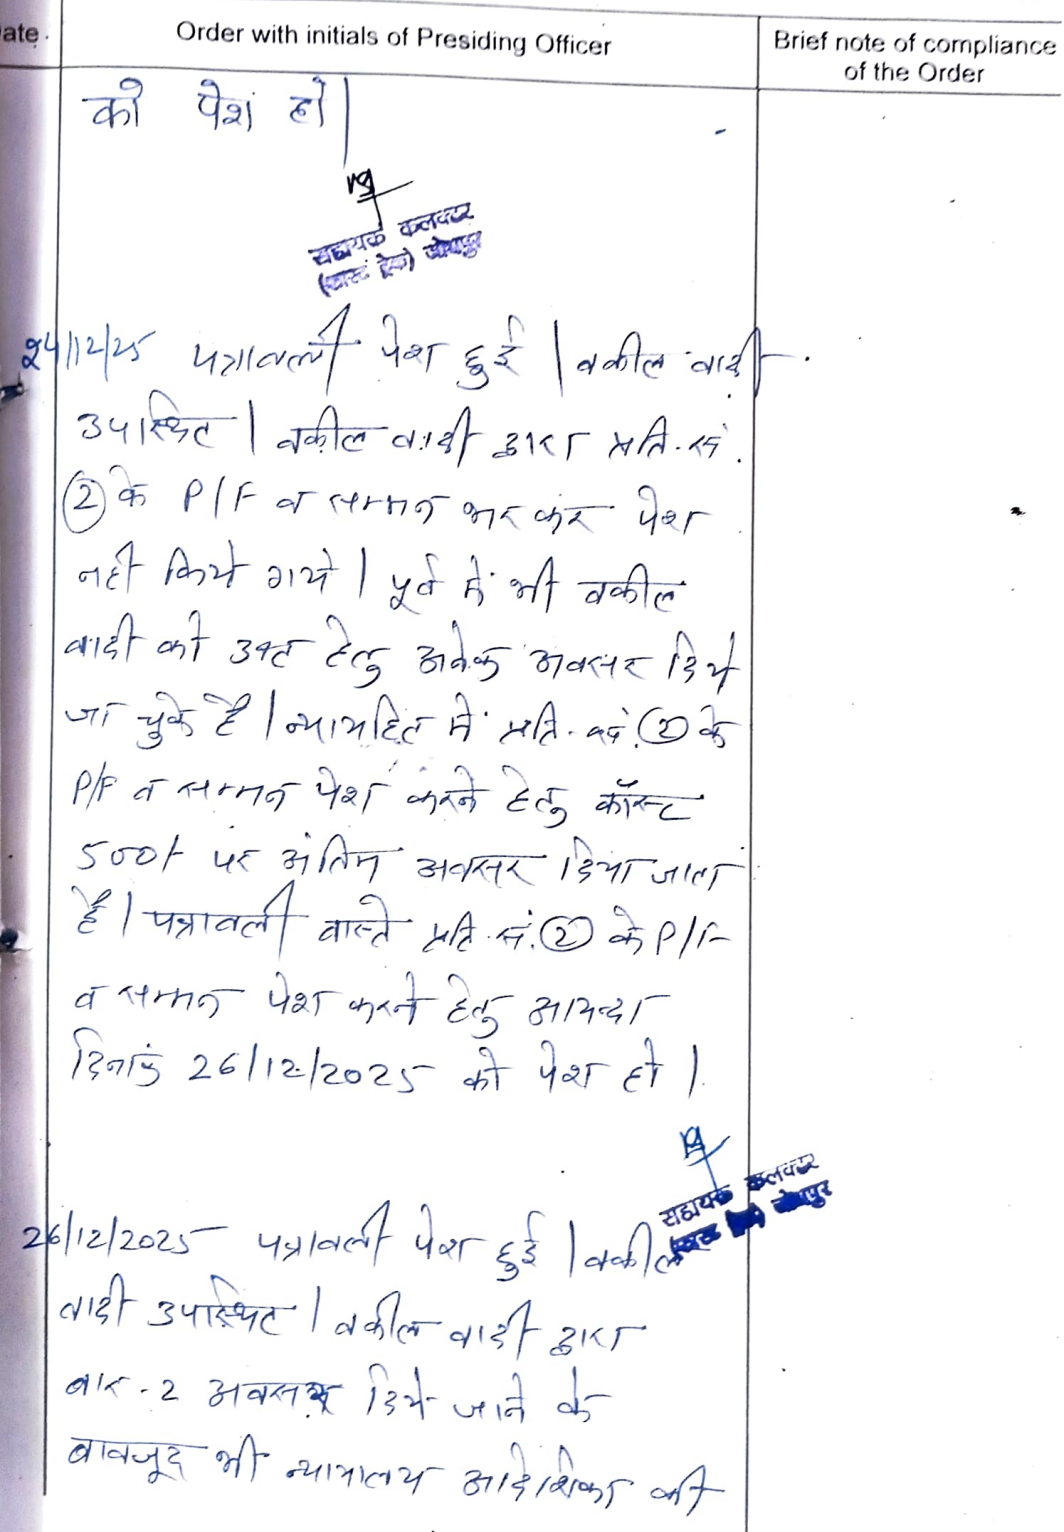 ate.
Order with initials of Presiding Officer
Brief note of compliance
of the Order
को पेश हो |
सहायक कलक्टर
(फास्ट ट्रेक) जोधपुर
24/12/25 पत्रावली पेश हुई | वकील वादी
उपस्थित | वकील वादी द्वारा प्रति. सं.
② के P/F व सम्मन भर कर पेश
नही किये गये | पूर्व में भी वकील
वादी को उक्त हेतु अनेक अवसर दिये
जा चुके है | न्यायहित में प्रति. सं. ② के
P/F व सम्मन पेश करने हेतु कॉस्ट
500/- पर अंतिम अवसर दिया जाता
है | पत्रावली वास्ते प्रति. सं. ② के P/F
व सम्मन पेश करने हेतु आयन्दा
दिनांक 26/12/2025 को पेश हो |
सहायक कलक्टर
(फास्ट ट्रेक) जोधपुर
26/12/2025 पत्रावली पेश हुई | वकील
वादी उपस्थित | वकील वादी द्वारा
बार-2 अवसर दिये जाने के
बावजूद भी न्यायालय आदेशिका की